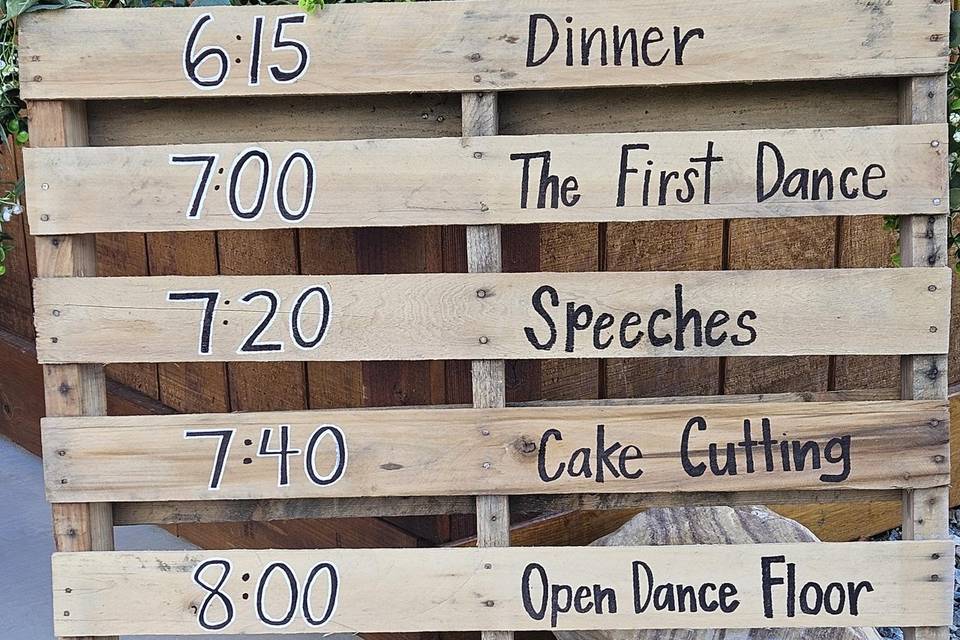 6:15 Dinner
7:00 The First Dance
7:20 Speeches
7:40 Cake Cutting
8:00 Open Dance Floor